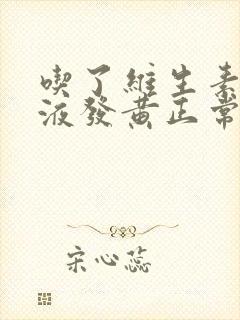 喫了維生素
液發黃正常
宋心蕊